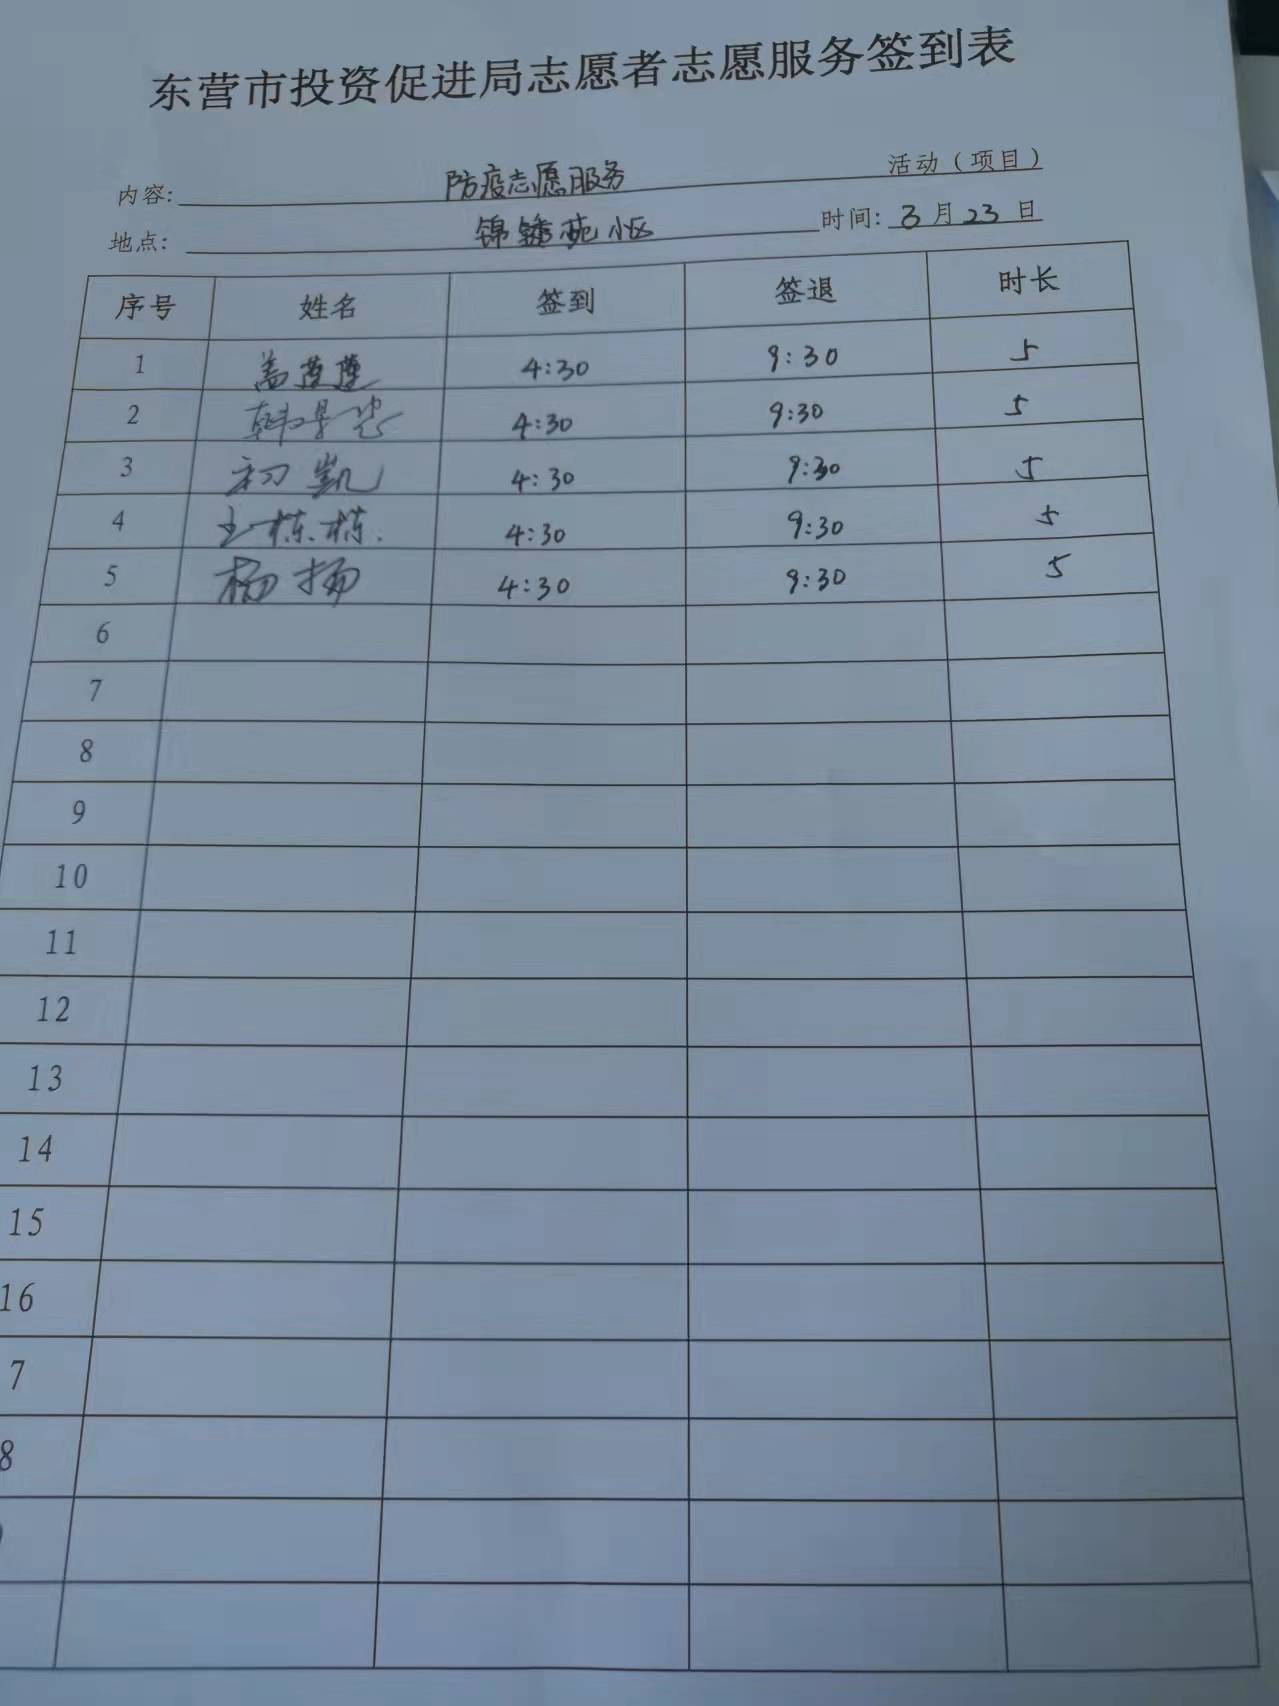 东营市投资促进局志愿者志愿服务签到表
内容: 防疫志愿服务 活动（项目）
地点: 锦绣苑小区 时间: 3月23日
序号 姓名 签到 签退 时长
1 盖莲莲 4:30 9:30 5
2 韩 4:30 9:30 5
3 初凯 4:30 9:30 5
4 王栋栋 4:30 9:30 5
5 杨扬 4:30 9:30 5
6
7
8
9
10
11
12
13
14
15
16
7
8